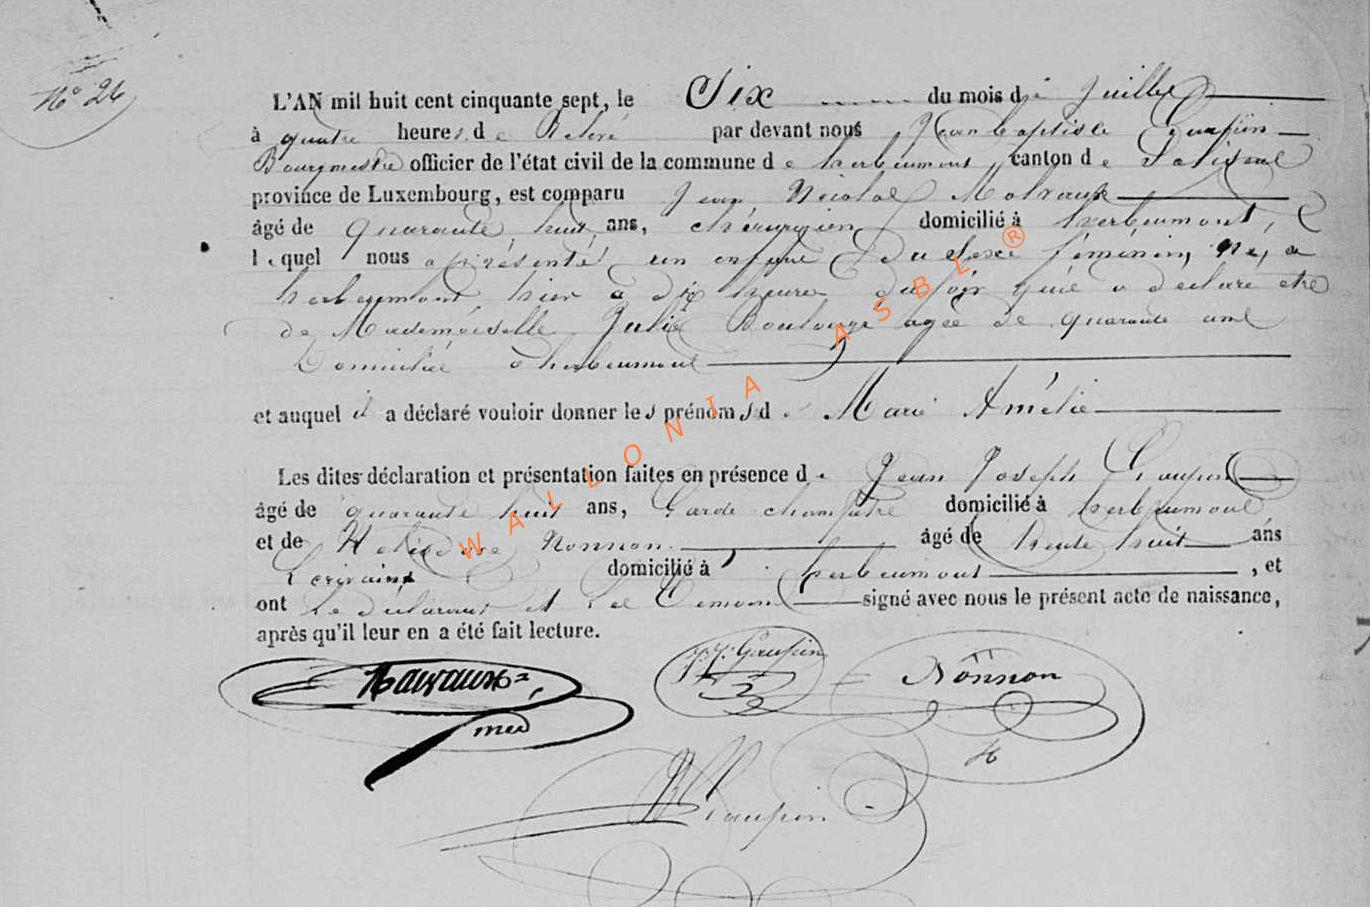 N° 26
L'AN mil huit cent cinquante sept, le Six du mois de Juillet
à quatre heures de Relevé par devant nous Jean baptiste Gaupin
Bourgmestre officier de l'état civil de la commune de herbeumont, canton de Paliseul
province de Luxembourg, est comparu Jean Nicolas
âgé de quarante huit ans, chirurgien domicilié à herbeumont,
lequel nous a présenté un enfant du sexe féminin, né, a
herbeumont hier à dix heures du soir qu'il a declaré etre
de Mademoiselle Julie Boulange agée de quarante une
Domiciliée a herbeumont
et auquel il a déclaré vouloir donner les prénoms de Marie Amélie
Les dites déclaration et présentation faites en présence de Jean Joseph Gaupin
âgé de quarante huit ans, Garde champetre domicilié à herbeumont
et de Heliodore Nonnon âgé de trente huit ans
Ecrivain domicilié à herbeumont, et
ont le déclarant et les temoins signé avec nous le présent acte de naissance,
après qu'il leur en a été fait lecture.
J. J. Gaupin
Nonnon
med
H
Gaupin
WALLONIA ASBL ®